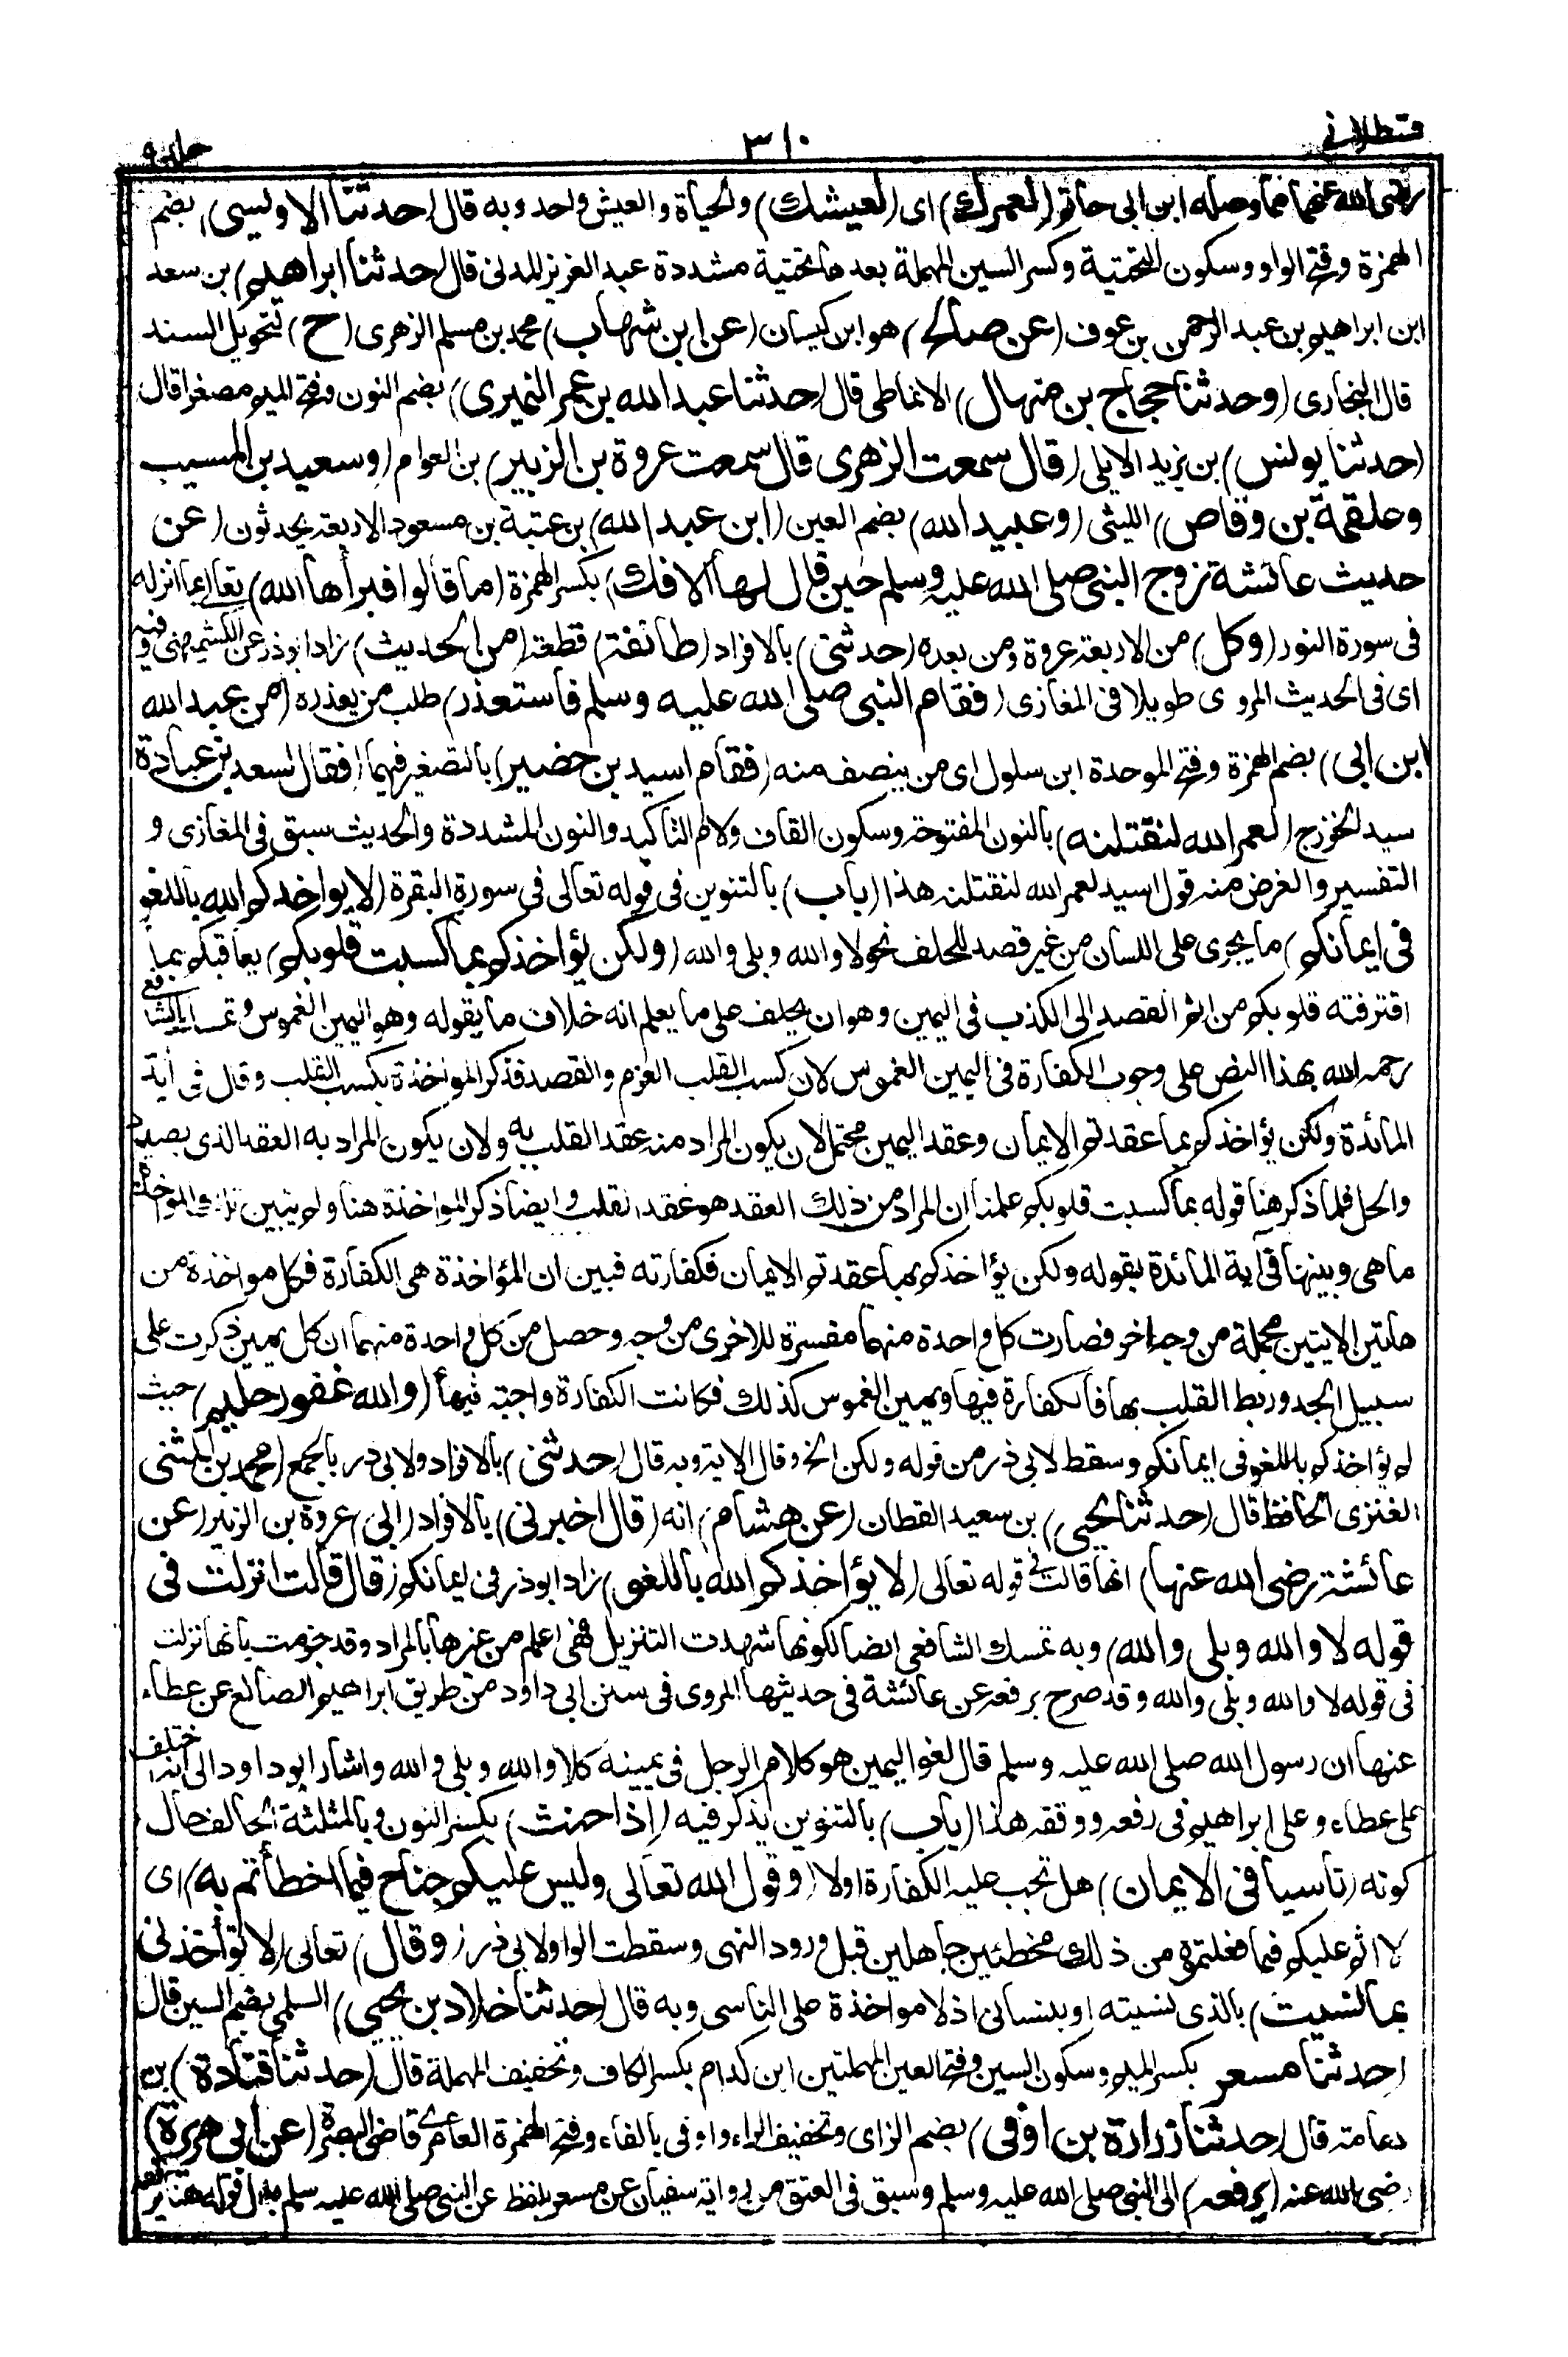 قسطلانی
٣١٠
جلد ٩
رضی الله عنهما فيما وصله ابن ابی حاتم (لعمرك) ای (لعيشك) والحياة والعيش واحد وبه قال (حدثنا الاويسی) بضم
الهمزة وفتح الواو وسكون التحتية وكسر السين المهملة بعدها تحتية مشددة عبد العزيز المدنی قال (حدثنا ابراهيم) بن سعد
ابن ابراهيم بن عبد الرحمن بن عوف (عن صالح) هو ابن كيسان (عن ابن شهاب) محمد بن مسلم الزهری (ح) لتحويل السند
قال البخاری (وحدثنا حجاج بن منهال) الانماطی قال (حدثنا عبد الله بن عمر النميری) بضم النون وفتح الميم مصغرا قال
(حدثنا يونس) بن يزيد الايلی (قال سمعت الزهری قال سمعت عروة بن الزبير) بن العوام (وسعيد بن المسيب
وعلقمة بن وقاص) الليثی (وعبيد الله) بضم العين (ابن عبد الله) بن عتبة بن مسعود الاربعة يحدثون (عن
حديث عائشة زوج النبی صلی الله عليه وسلم حين قال لها اهل الافك) بكسر الهمزة (ما قالوا فبرأها الله) تعالی بما انزله
فی سورة النور (وكل) من الاربعة عروة ومن بعده (حدثنی) بالافراد (طائفة) قطعة (من الحديث) زاد ابو ذر عن الكشميهنی وفيه
ای فی الحديث المروی طويلا فی المغازی (فقام النبی صلی الله عليه وسلم فاستعذر) طلب من يعذره (من عبد الله
ابن ابی) بضم الهمزة وفتح الموحدة ابن سلول ای من ينصف منه (فقام اسيد بن حضير) بالتصغير فيهما (فقال لسعد بن عبادة
سيد الخزرج (لعمر الله لنقتلنه) بالنون المفتوحة وسكون القاف ولام التأكيد والنون المشددة والحديث سبق فی المغازی و
التفسير والغرض منه قول اسيد لعمر الله لنقتلنه هذا (باب) بالتنوين فی قوله تعالی فی سورة البقرة (لا يواخذكم الله باللغو
فی ايمانكم) ما يجری علی اللسان من غير قصد للحلف نحو لا والله وبلی والله (ولكن يؤاخذكم بما كسبت قلوبكم) يعاقبكم بما
اقترفته قلوبكم من اثم القصد الی الكذب فی اليمين وهو ان يحلف علی ما يعلم انه خلاف ما يقوله وهو اليمين الغموس وتمسك الشافعی
رحمه الله بهذا النص علی وجوب الكفارة فی اليمين الغموس لان كسب القلب العزم والقصد فذكر المواخذة بكسب القلب وقال فی آية
المائدة ولكن يؤاخذكم بما عقدتم الايمان وعقد اليمين محتمل لان يكون المراد منه عقد القلب به ولان يكون المراد به العقد الذی يضاد
والحل فلما ذكر هنا قوله بما كسبت قلوبكم علمنا ان المراد من ذلك العقد هو عقد القلب وايضا ذكر المواخذة هنا ولم يبين تلك المواخذة
ما هی وبينها فی آية المائدة بقوله ولكن يؤاخذكم بما عقدتم الايمان فكفارته فبين ان المؤاخذة هی الكفارة فكل مواخذة من
هاتين الايتين مجملة من وجه اخر فصارت كل واحدة منهما مفسرة للاخری من وجه وحصل من كل واحدة منهما ان كل يمين ذكرت علی
سبيل الجد وربط القلب بها فالكفارة فيها ويمين الغموس كذلك فكانت الكفارة واجبة فيها (والله غفور حليم) حيث
لم يؤاخذكم باللغو فی ايمانكم وسقط لابی ذر من قوله ولكن الخ وقال الاية وبه قال (حدثنی) بالافراد ولابی ذر بالجمع (محمد بن المثنی
العنزی الحافظ قال (حدثنا يحيی) بن سعيد القطان (عن هشام) انه (قال اخبرنی) بالافراد (ابی) عروة بن الزبير (عن
عائشة رضی الله عنها) انها قالت فی قوله تعالی (لا يؤاخذكم الله باللغو) زاد ابو ذر فی ايمانكم (قال قالت انزلت فی
قوله لا والله وبلی والله) وبه تمسك الشافعی ايضا لكونها شهدت التنزيل فهی اعلم من غيرها بالمراد وقد جزمت بانها نزلت
فی قوله لا والله وبلی والله وقد صرح برفعه عن عائشة فی حديثها المروی فی سنن ابی داود من طريق ابراهيم الصائغ عن عطاء
عنها ان رسول الله صلی الله عليه وسلم قال لغو اليمين هو كلام الرجل فی يمينه كلا والله وبلی والله واشار ابو داود الی انه اختلف
علی عطاء وعلی ابراهيم فی رفعه ووقفه هذا (باب) بالتنوين يذكر فيه (اذا حنث) بكسر النون وبالمثلثة الحالف حال
كونه (ناسيا فی الايمان) هل تجب عليه الكفارة اولا (وقول الله تعالی وليس عليكم جناح فيما اخطأتم به) ای
لا اثم عليكم فيما فعلتموه من ذلك مخطئين جاهلين قبل ورود النهی وسقطت الواو لابی ذر (وقال) تعالی (لا تؤاخذنی
بما نسيت) بالذی نسيته او بنسيانی اذ لا مواخذة علی الناسی وبه قال (حدثنا خلاد بن يحيی) السلمی بضم السين قال
(حدثنا مسعر) بكسر الميم وسكون السين وفتح العين المهملتين ابن كدام بكسر الكاف وتخفيف المهملة قال (حدثنا قتادة) بن
دعامة قال (حدثنا زرارة بن اوفی) بضم الزای وتخفيف الراء واوفی بالفاء وفتح الهمزة العامری قاضی البصرة (عن ابی هريرة)
رضی الله عنه (يرفعه) الی النبی صلی الله عليه وسلم وسبق فی العتق من رواية سفيان عن مسعر بلفظ عن النبی صلی الله عليه وسلم بدل قوله هنا يرفعه